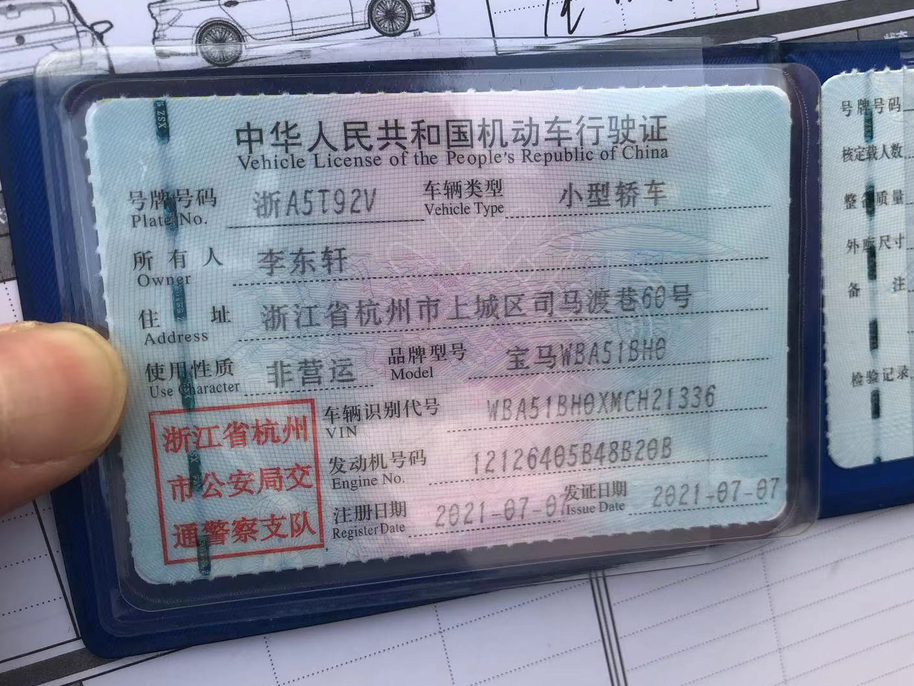 中华人民共和国机动车行驶证
Vehicle License of the People's Republic of China
号牌号码 浙A5T92V 车辆类型 小型轿车
Plate No. Vehicle Type
所有人 李东轩
Owner
住址 浙江省杭州市上城区司马渡巷60号
Address
使用性质 非营运 品牌型号 宝马WBA51BH0
Use Character Model
车辆识别代号 WBA51BH0XMCH21336
VIN
发动机号码 12126405B48B20B
Engine No.
注册日期 2021-07-07 发证日期 2021-07-07
Register Date Issue Date
浙江省杭州
市公安局交
通警察支队
号牌号码
核定载人数
整备质量
外廓尺寸
备注
检验记录